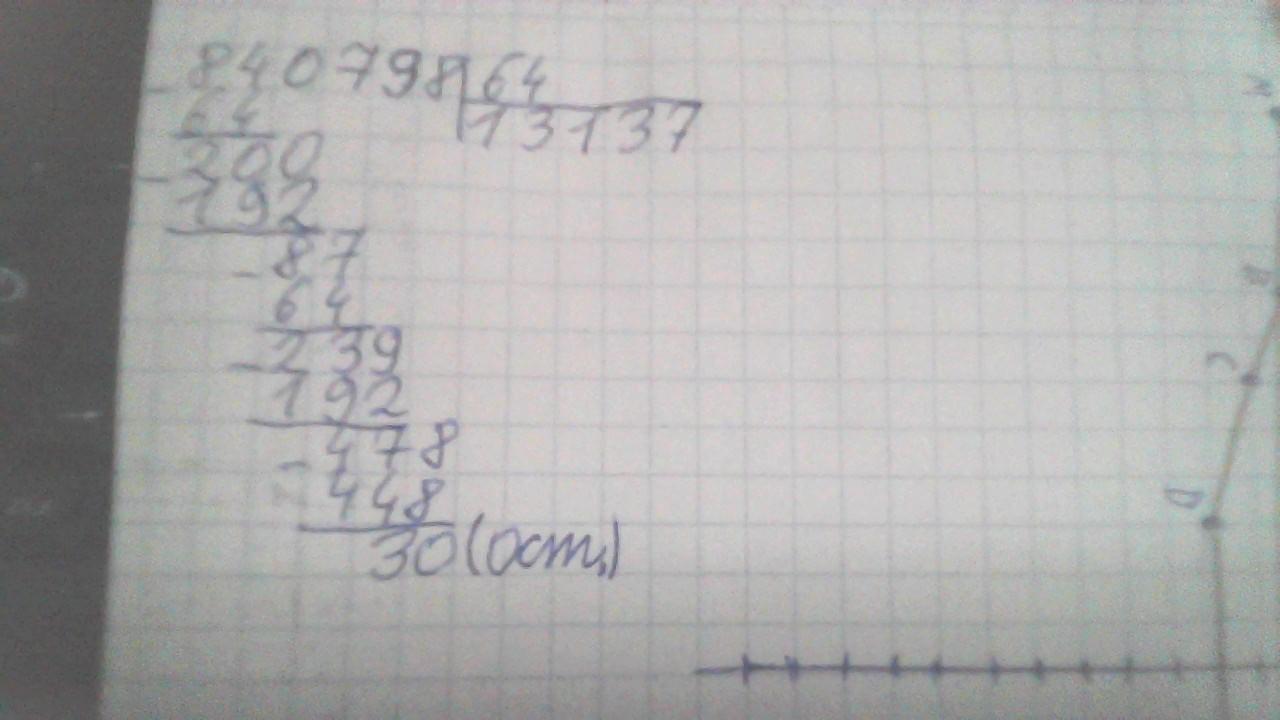 840798 64
64 13137
200
192
87
64
239
192
478
448
30 (ост.)